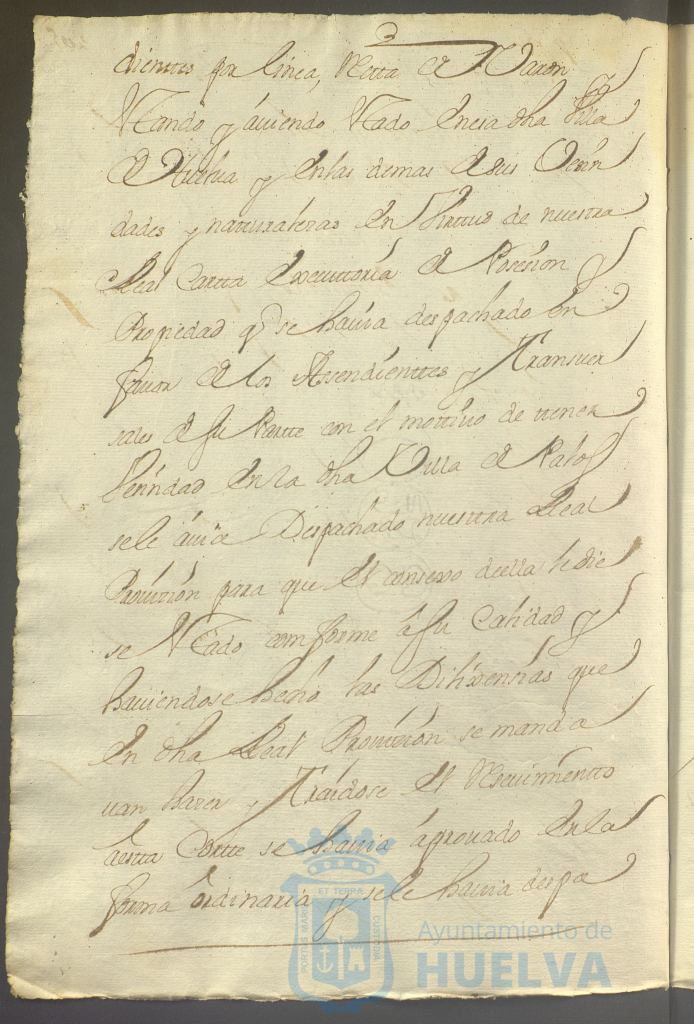 dienttes por linea, Recta de Varon
estando y áuiendo estado En esa dha Villa
de Huelua y Enlas demas de sus Vecin
dades y naturalezas En Virttud de nuestra
Real Cartta Executtoria de Posesion y
Propiedad q̃ se hauia despachado En
fauor de los Asendienttes y Transuer
sales de su Partte con el mottiuo de tener
Vezindad En la dha Villa de Palos
sele áuia Despachado nuestra Real
Prouission para que El consexo deella le die
se estado comforme á su Calidad y
hauiendose hecho las Dilixensias que
En dha Real Prouission se manda
uan hazer y Traidose El Reciuimientto
áestta Cortte se hauia áprouado En la
forma órdinaria y sele hauia despa
PORTUS MARIS ET TERRAE CUSTODIA
Ayuntamiento de
HUELVA